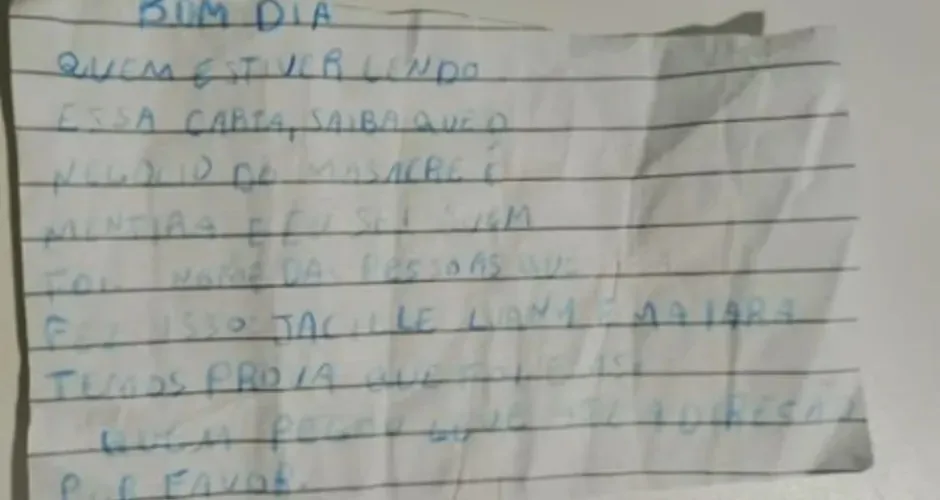 BOM DIA
QUEM ESTIVER LENDO
ESSA CARTA, SAIBA QUE O
NEGOCIO DO MASACRE É
MENTIRA E EU SEI QUEM
FOI NOME DA PESSOAS QUE
FEZ ISSO TACILLE LIANA E MAIARA
TEMOS PROVA QUE FOI
QUEM PEGOU LEVE DIRESÃO
POR FAVOR